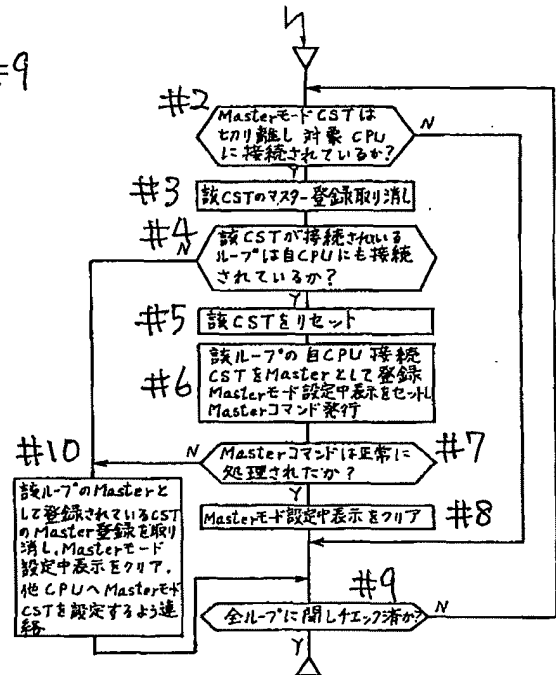 =9
#2
MasterモードCSTは
切り離し対象CPU
に接続されているか?
N
Y
#3
該CSTのマスター登録取り消し
#4
該CSTが接続されいる
ループは自CPUにも接続
されているか?
N
Y
#5
該CSTをリセット
#6
該ループの自CPU接続
CSTをMasterとして登録
Masterモード設定中表示をセットし
Masterコマンド発行
#7
Masterコマンドは正常に
処理されたか?
N
Y
#8
Masterモード設定中表示をクリア
#10
該ループのMasterと
して登録されているCST
のMaster登録を取り
消し、Masterモード
設定中表示をクリア.
他CPUへMasterモード
CSTを設定するよう連
絡
#9
全ループに関しチエック済か?
N
Y